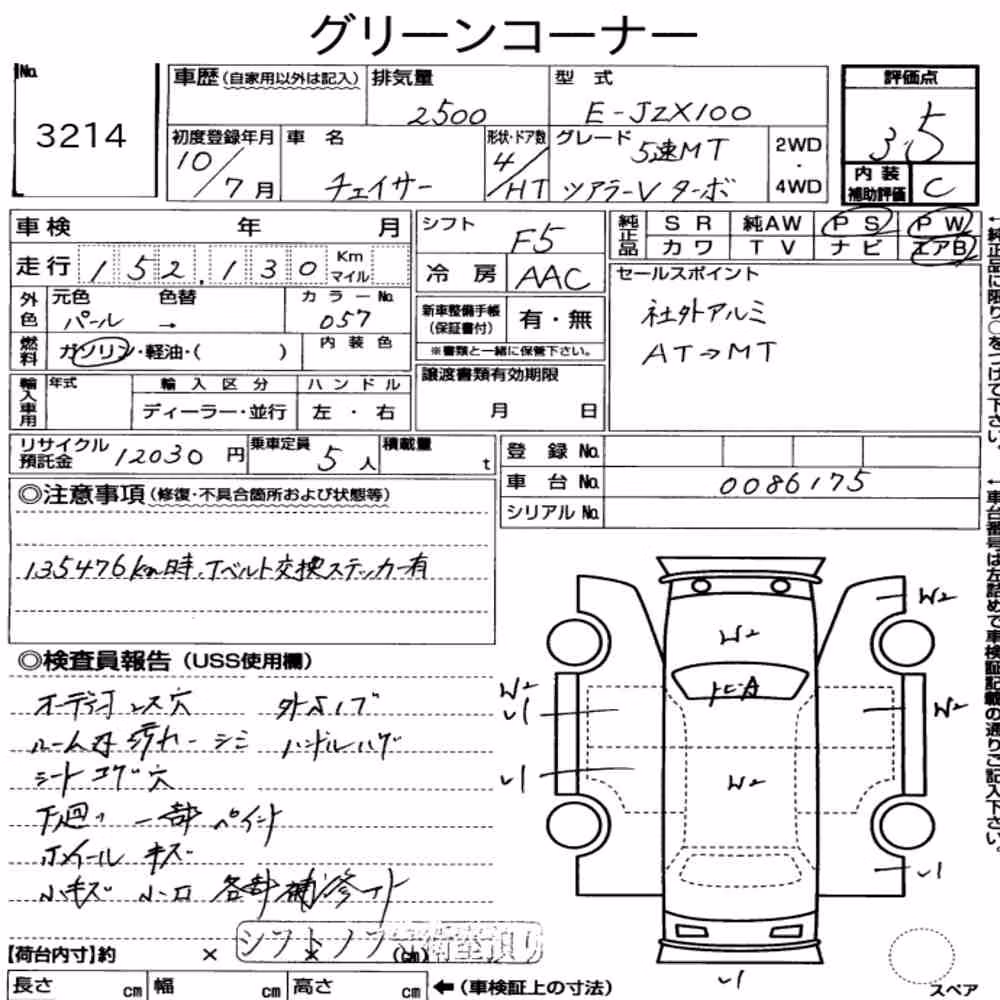 グリーンコーナー
No.
3214
車歴(自家用以外は記入)
排気量
2500
型式
E-JZX100
評価点
3.5
内装補助評価
C
初度登録年月
10/7月
車名
チェイサー
形状・ドア数
4/HT
グレード
5速MT
ツアラーV ターボ
2WD
・
4WD
車検 年 月
走行 152,130 Km マイル
シフト
F5
冷房 AAC
純正品
SR 純AW PS PW
カワ TV ナビ エアB
外色
元色 色替
パール →
カラーNo.
057
燃料
ガソリン・軽油・( )
内装色
新車整備手帳(保証書付)
有・無
※書類と一緒に保管下さい。
セールスポイント
社外アルミ
AT→MT
輸入車用
年式
輸入区分
ハンドル
ディーラー・並行
左・右
譲渡書類有効期限
月 日
リサイクル預託金 12030円
乗車定員 5人
積載量 t
登録No.
車台No. 0086175
シリアルNo.
◎注意事項(修復・不具合箇所および状態等)
135476km時、Tベルト交換ステッカー有
◎検査員報告(USS使用欄)
オーディオレス穴
ルーム内 汚れ・シミ ハンドルハゲ
シートコゲ穴
下廻り 一部 ペイント
ホイール キズ
小キズ 小凹 各部補修有
シフトノブ
W2
W2
W2
U1
W2
U1
W2
U1
U1
【荷台内寸】約 × × (cm)
長さ cm 幅 cm 高さ cm ←(車検証上の寸法)
スペア
←純正品に限り○をつけて下さい。
←車台番号は左詰めで車検証記載の通りご記入下さい。